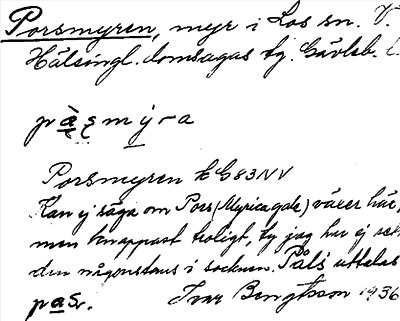 Porsmyren, myr i Los sn. V.
Hälsingl. domsagas tg. Gävleb. l.
pàs̨myra
Porsmyren k G 83 NV
Kan ej säga om Pors (Myrica gale) växer här,
men knappast troligt, ty jag har ej sett
den någonstans i socknen. Påls uttalas
pas.
Ivar Bengtsson 1936